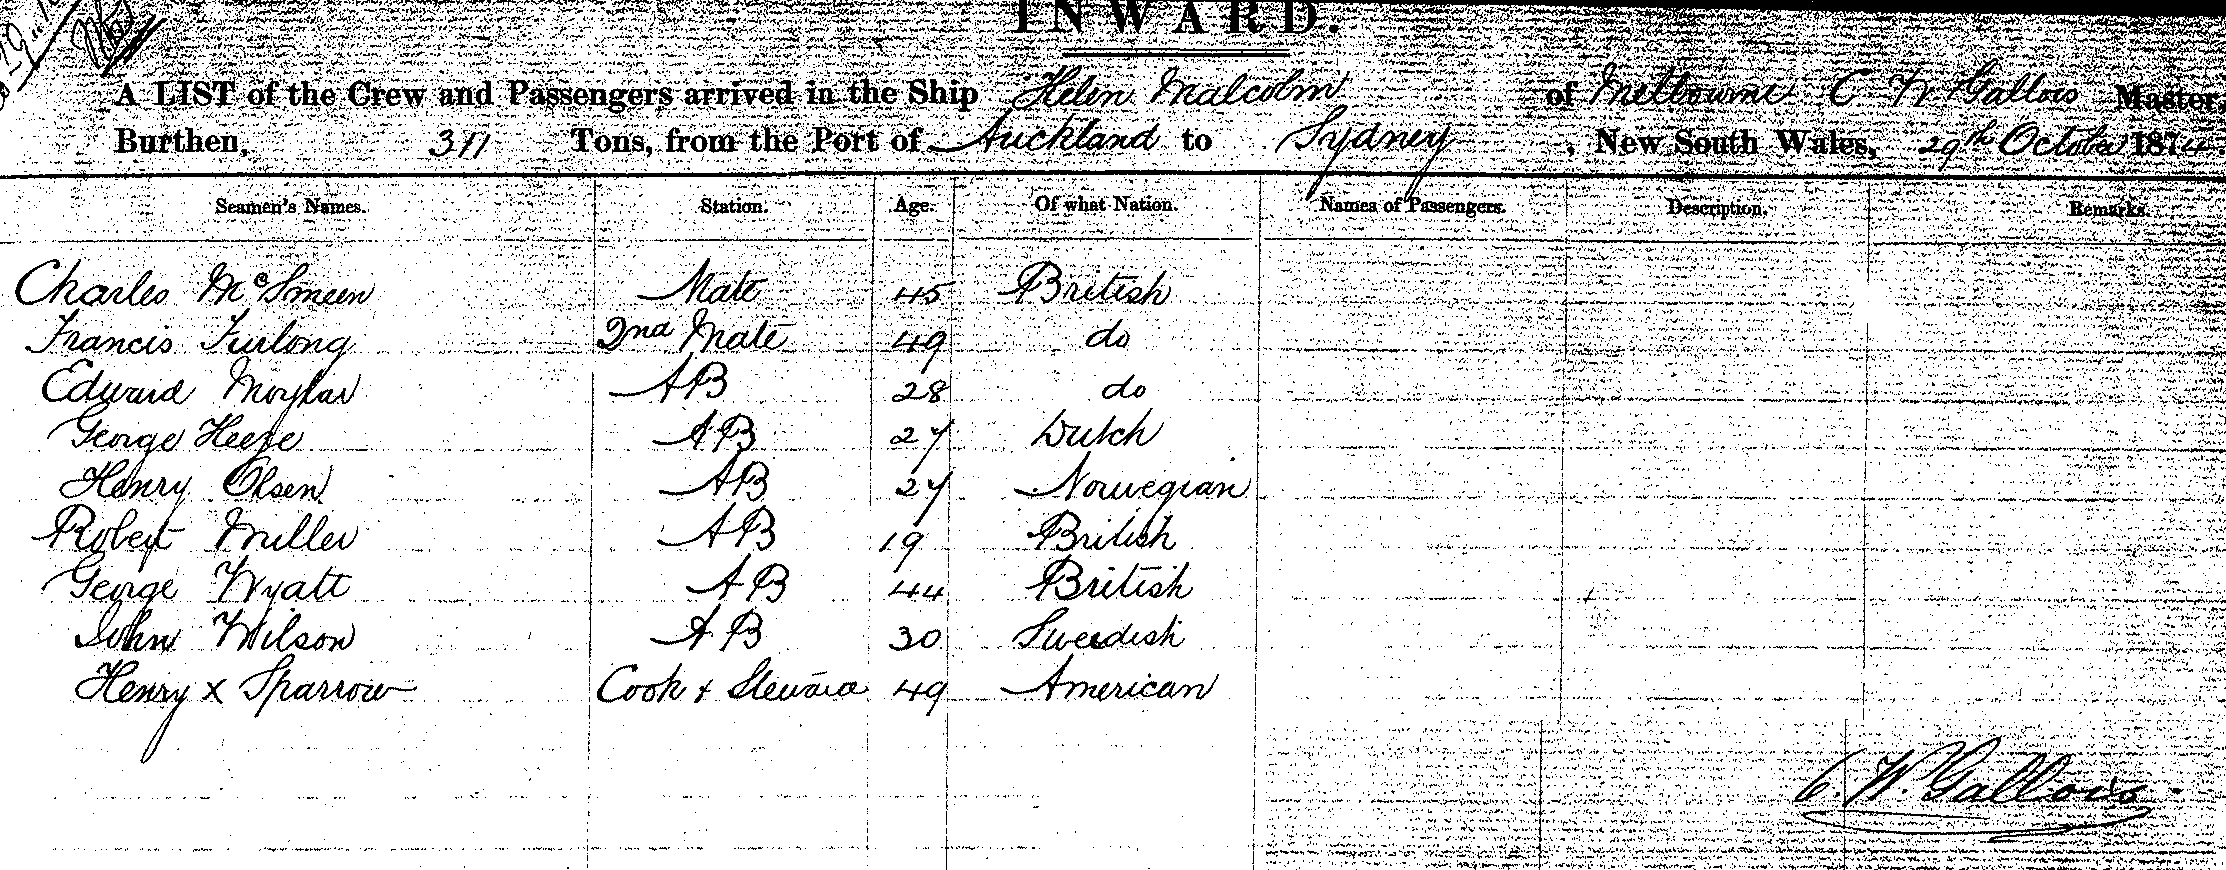 INWARD.
A LIST of the Crew and Passengers arrived in the Ship Helen Malcolm of Melbourne C W Gallois Master,
Burthen, 311 Tons, from the Port of Auckland to Sydney, New South Wales, 29th October 1874.
Seamen's Names. Station. Age. Of what Nation. Names of Passengers. Description. Remarks.
Charles Mc Smeen Mate 45 British
Francis Furlong 2nd Mate 49 do
Edward Moylar AB 28 do
George Heeze AB 27 Dutch
Henry Olsen AB 27 Norwegian
Robert Miller AB 19 British
George Wyatt AB 44 British
John Wilson AB 30 Swedish
Henry x Sparrow Cook + Steward 49 American
C. W. Gallois.